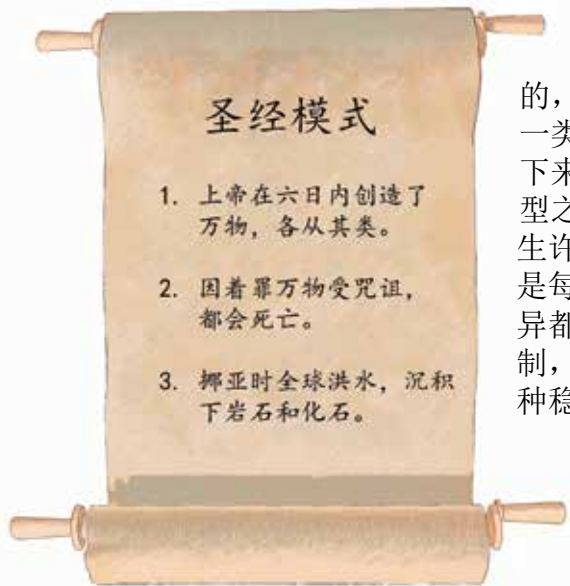 圣经模式
1. 上帝在六日内创造了
万物，各从其类。
2. 因着罪万物受咒诅，
都会死亡。
3. 挪亚时全球洪水，沉积
下岩石和化石。
的，
一类
下来
型之
生许
是每
异都
制，
种稳